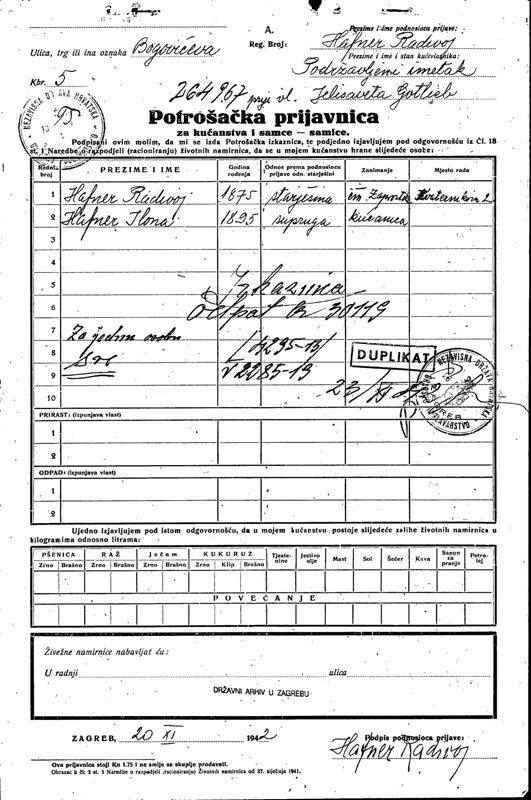 A.
Reg. Broj:
Prezime i ime podnosioca prijave:
Hafner Radivoj
Ulica, trg ili ina oznaka Bogovićeva
Prezime i ime i stan kućevlasnika:
Podržavljeni imetak
Kbr. 5
264967 prije vl. Jelisaveta Gottlieb
NEZAVISNA DRŽAVA HRVATSKA
Potrošačka prijavnica
za kućanstva i samce — samice.
Potpisani ovim molim, da mi se izda Potrošačka izkaznica, te podjedno izjavljujem pod odgovornošću iz Čl. 18
st. 1 Naredbe o razpodjeli (racioniranju) životnih namirnica, da se u mojem kućanstvu hrane slijedeće osobe:
Redni broj PREZIME I IME Godina rodjenja Odnos prema podnosiocu prijave odn. starješini Zanimanje Mjesto rada
1 Hafner Radivoj 1875 starješina čin. Kvaternikov 2
2 Hafner Ilona 1895 supruga kućanica
3
4
5 Izkaznica
6 Otpat br 30119
7 Za jednu osobu
8 /4295-13/ DUPLIKAT
9 v 2285-19
10 23/XI
NEZAVISNA DRŽAVA HRVATSKA
ZAGREB
POGLAVARSTVO
PRIRAST: (Izpunjava vlast)
1
2
ODPAD: (Izpunjava vlast)
1
2
Ujedno izjavljujem pod istom odgovornošću, da u mojem kućanstvu postoje slijedeće zalihe životnih namirnica u
kilogramima odnosno litrama:
PŠENICA RAŽ Ječam KUKURUZ Tjestenine Jestivo ulje Mast Sol Šećer Kava Sapun za pranje Petrolej
Zrno Brašno Zrno Brašno Zrno Brašno Zrno Klip Brašno
POVEĆANJE
Živežne namirnice nabavljat ću:
U radnji ulica
DRŽAVNI ARHIV U ZAGREBU
ZAGREB, 20 XI 1942
Podpis podnosioca prijave:
Hafner Radivoj
Ova prijavnica stoji Kn 1.75 i ne smije se skuplje prodavati.
Obrazac k čl. 2 st. 1 Naredbe o razpodjeli (racioniranju) životnih namirnica od 27. siječnja 1941.